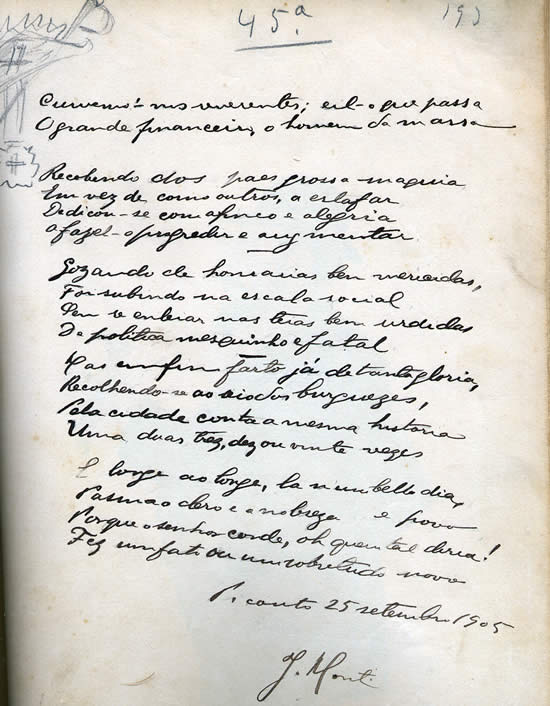 45.ª
193
Curvemo-nos reverentes; eil-o que passa
O grande financeiro, o homem da massa
Recebendo dos paes grossa maquia
Em vez de como outros, a esfafar
Dedicou-se com afinco e alegria
A fazel-o progredir e augmentar
Gozando de honrarias bem merecidas,
Foi subindo na escala social
Sem se enlear nas teias bem urdidas
Da politica mesquinho e fatal
Mas emfim farto já de tanta gloria,
Recolhendo-se ao seio dos burguezes,
Pela cidade conta a mesma historia
Uma duas trez, dez ou vinte vezes
E longe ao longe, la n'um bello dia,
Pasma o clero e a nobreza e povo
Porque o senhor conde, oh quem tal diria!
Fez um fato ou um sobretudo novo
25 setembro 1905
J. Mont.